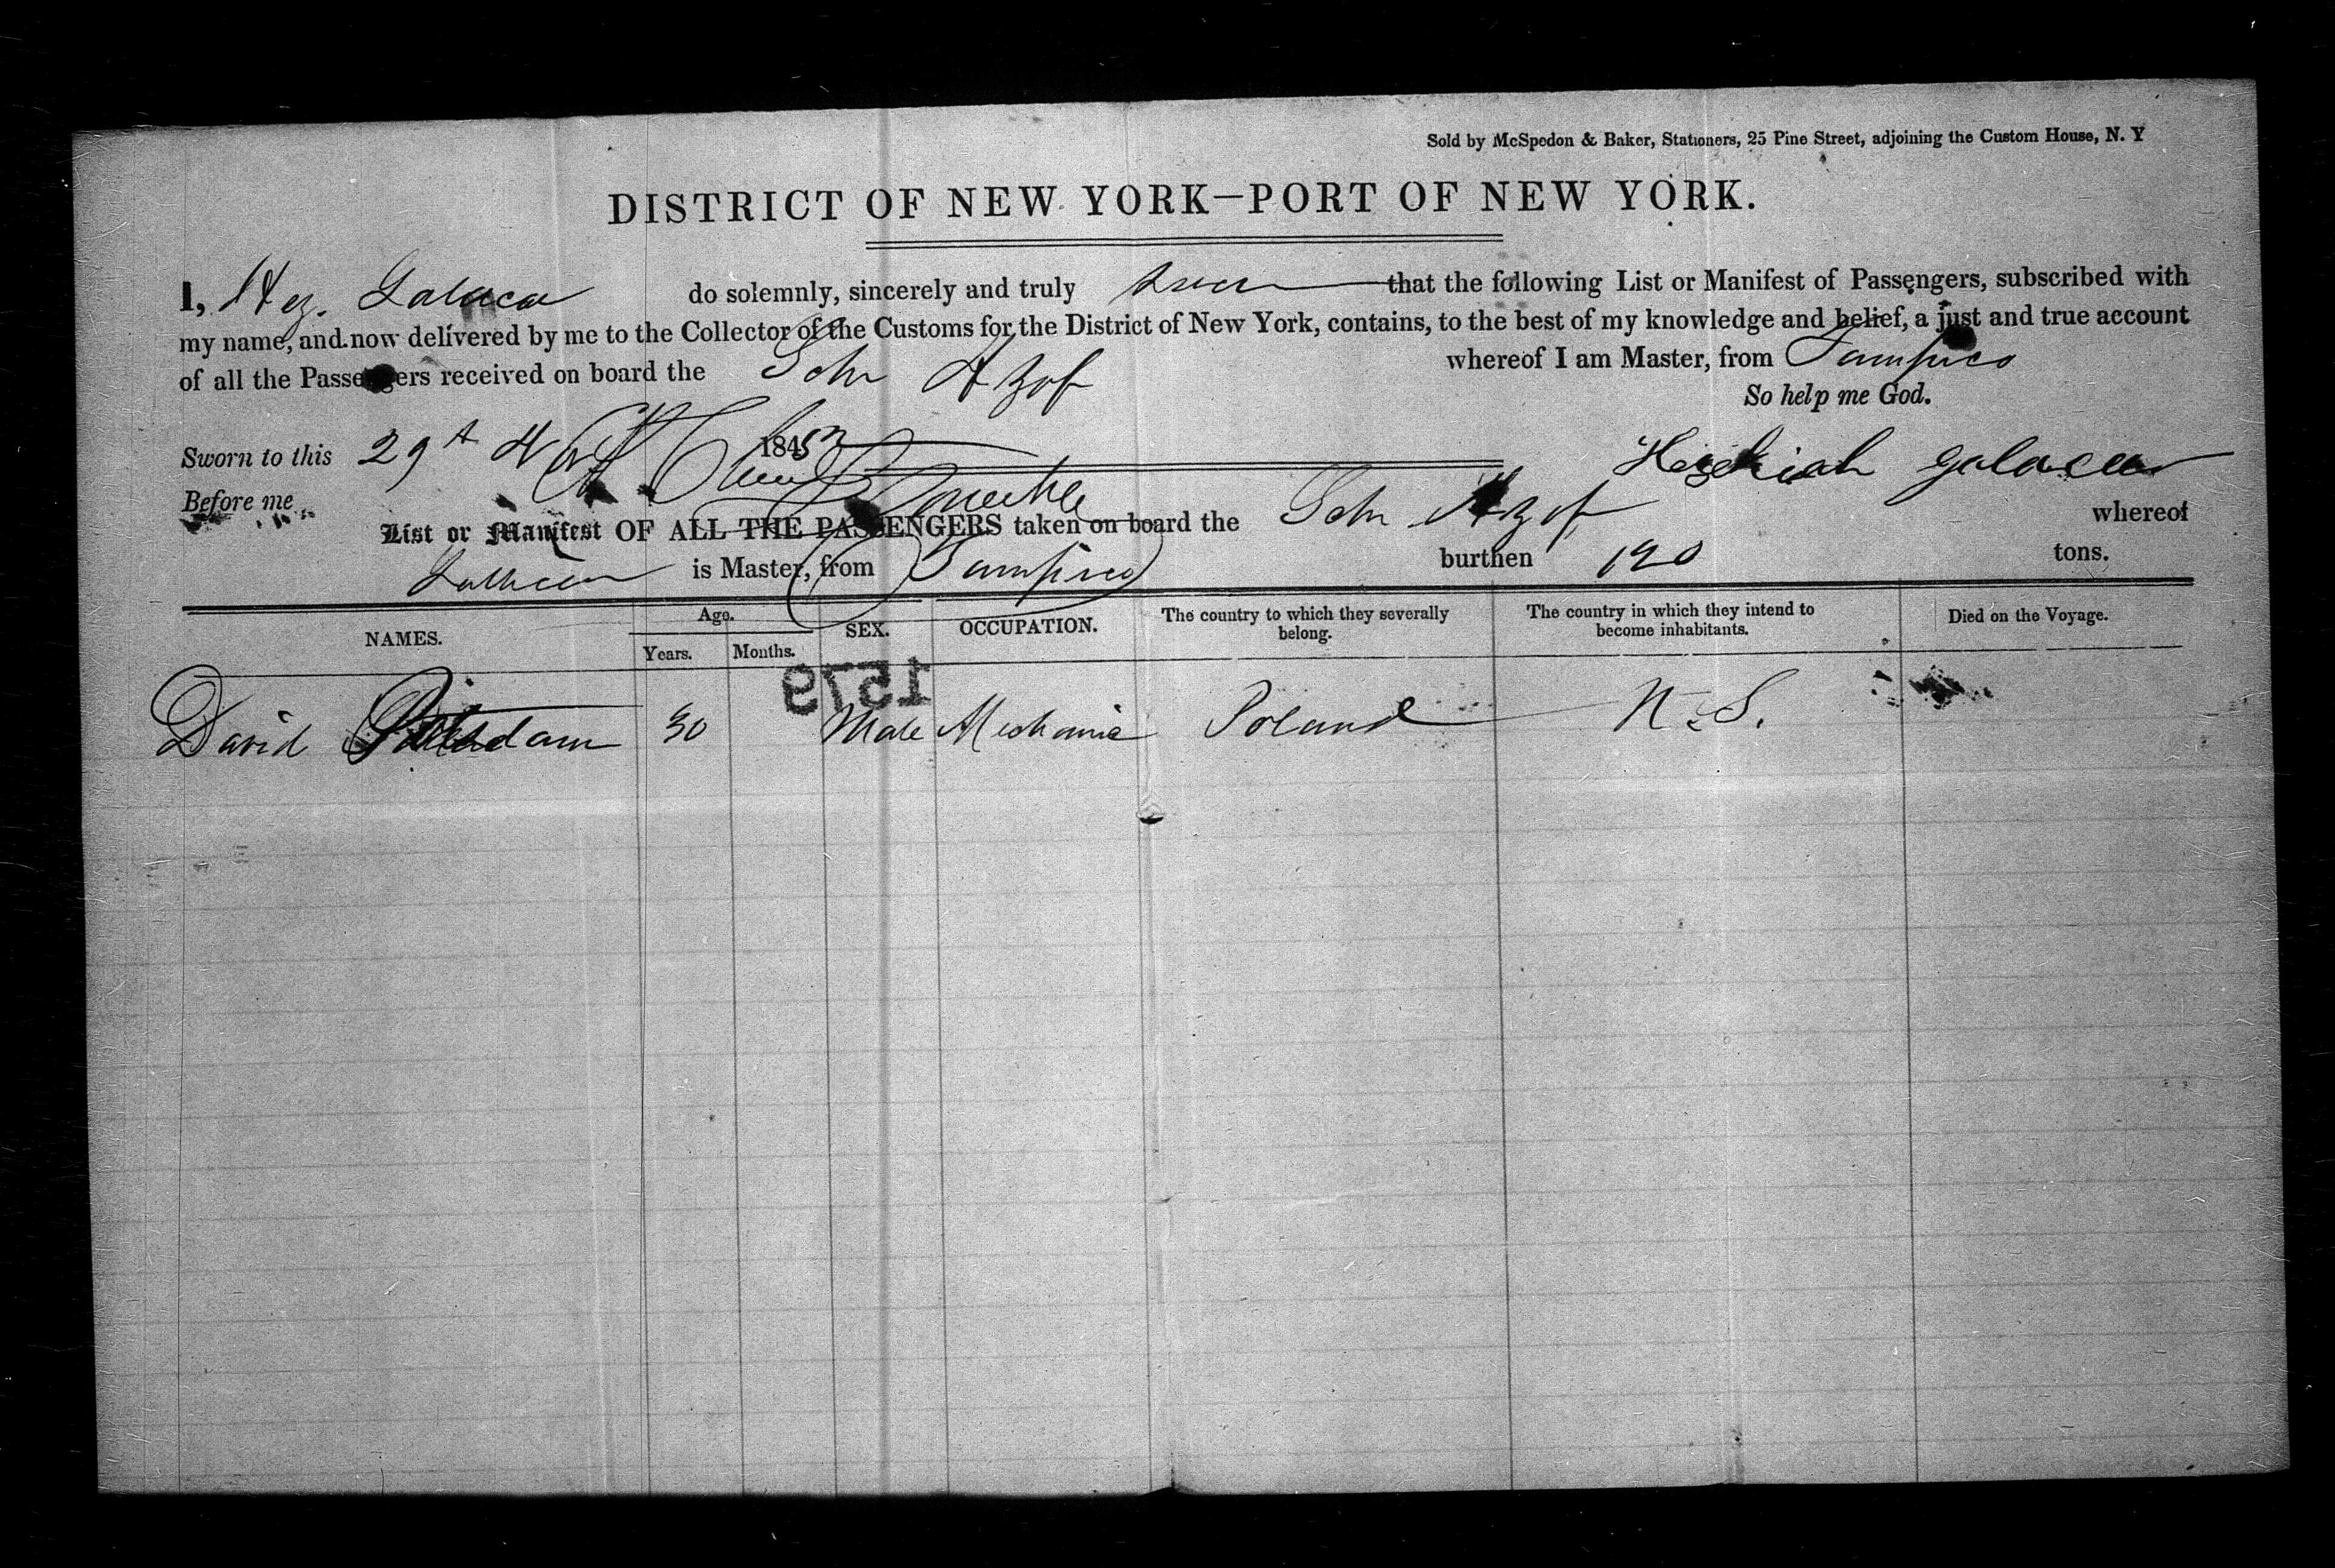 Sold by McSpedon & Baker, Stationers, 25 Pine Street, adjoining the Custom House, N. Y
DISTRICT OF NEW YORK—PORT OF NEW YORK.
I, Hez. do solemnly, sincerely and truly that the following List or Manifest of Passengers, subscribed with
my name, and now delivered by me to the Collector of the Customs for the District of New York, contains, to the best of my knowledge and belief, a just and true account
of all the Passengers received on board the Schr Azof whereof I am Master, from Tampico
So help me God.
Sworn to this 29th 1853
Hezekiah
Before me
List or Manifest OF ALL THE PASSENGERS taken on board the Schr Azof whereof
is Master, from Tampico burthen 190 tons.
NAMES. Age. Years. Months. SEX. OCCUPATION. The country to which they severally belong. The country in which they intend to become inhabitants. Died on the Voyage.
1579
David 30 Male Mechanic Poland U.S.